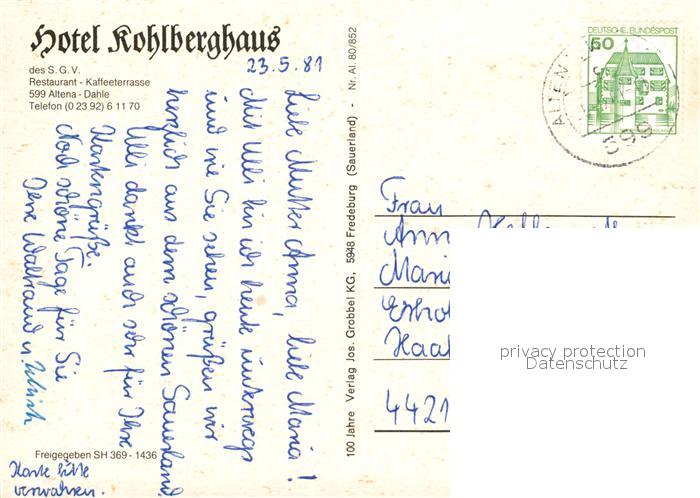 Hotel Kohlberghaus
des S. G. V.
Restaurant - Kaffeeterrasse
599 Altena - Dahle
Telefon (0 23 92) 6 11 70
23.5.81
Liebe Mutter Anna, liebe Maria!
Mit Ulli bin ich heute unterwegs
und wie Sie sehen, grüßen wir
herzlich aus dem schönen Sauerland
Ulli dankt auch sehr für Ihre
Kartengrüße.
Noch schöne Tage für Sie
Ihre Waltraud u. Ulrich
Freigegeben SH 369 - 1436
Karte bitte
verwahren.
100 Jahre Verlag Jos. Grobbel KG, 5948 Fredeburg (Sauerland) - Nr. Al. 80/852
DEUTSCHE BUNDESPOST
60
599
Frau
Anna
4421
privacy protection
Datenschutz